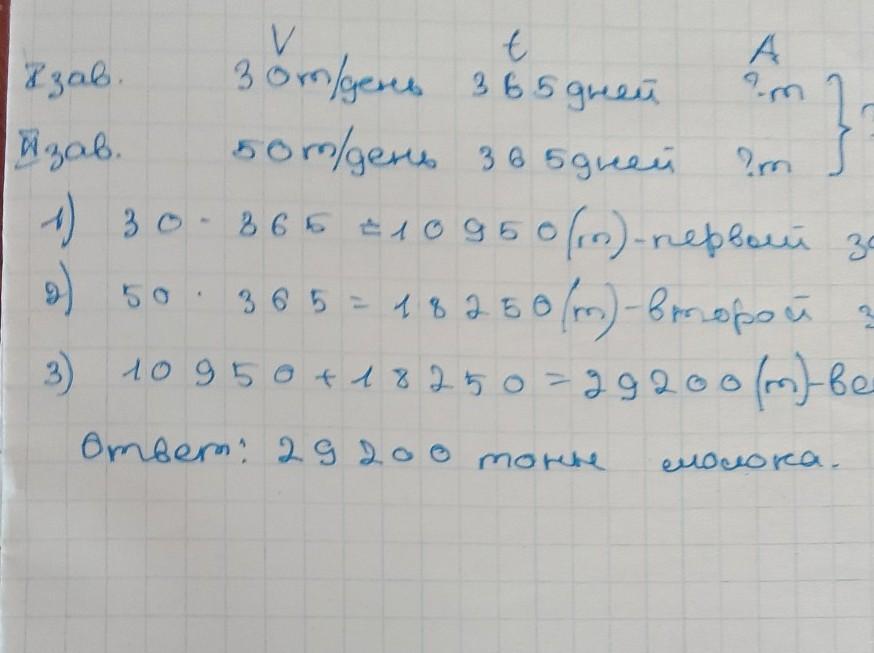 V t A
I зав. 30т/день 365дней ?т
II зав. 50т/день 365дней ?т
1) 30 · 365 = 10950(т)-первый
2) 50 · 365 = 18250(т)-второй
3) 10950 + 18250 = 29200(т)-
Ответ: 29200 тонн молока.